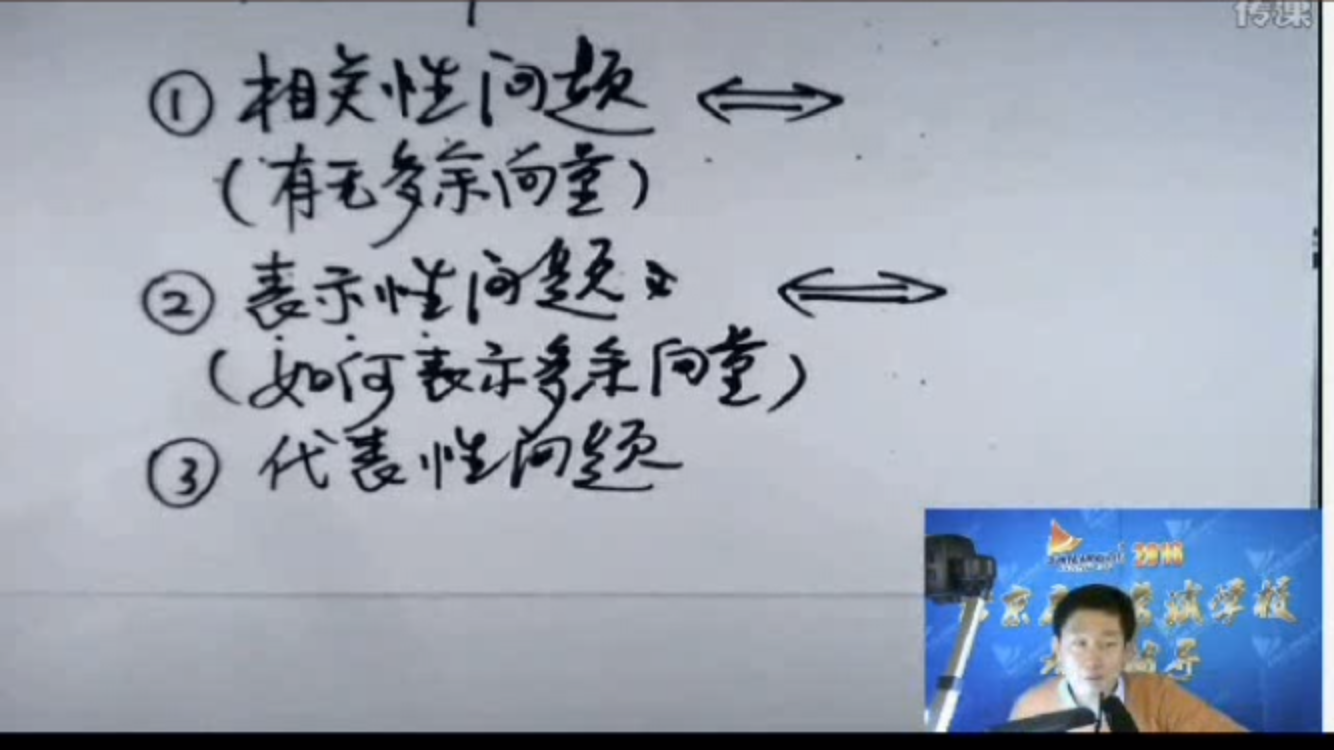 传课
① 相关性问题 ⟺
(有无多余向量)
② 表示性问题 ⟺
(如何表示多余向量)
③ 代表性问题
2016